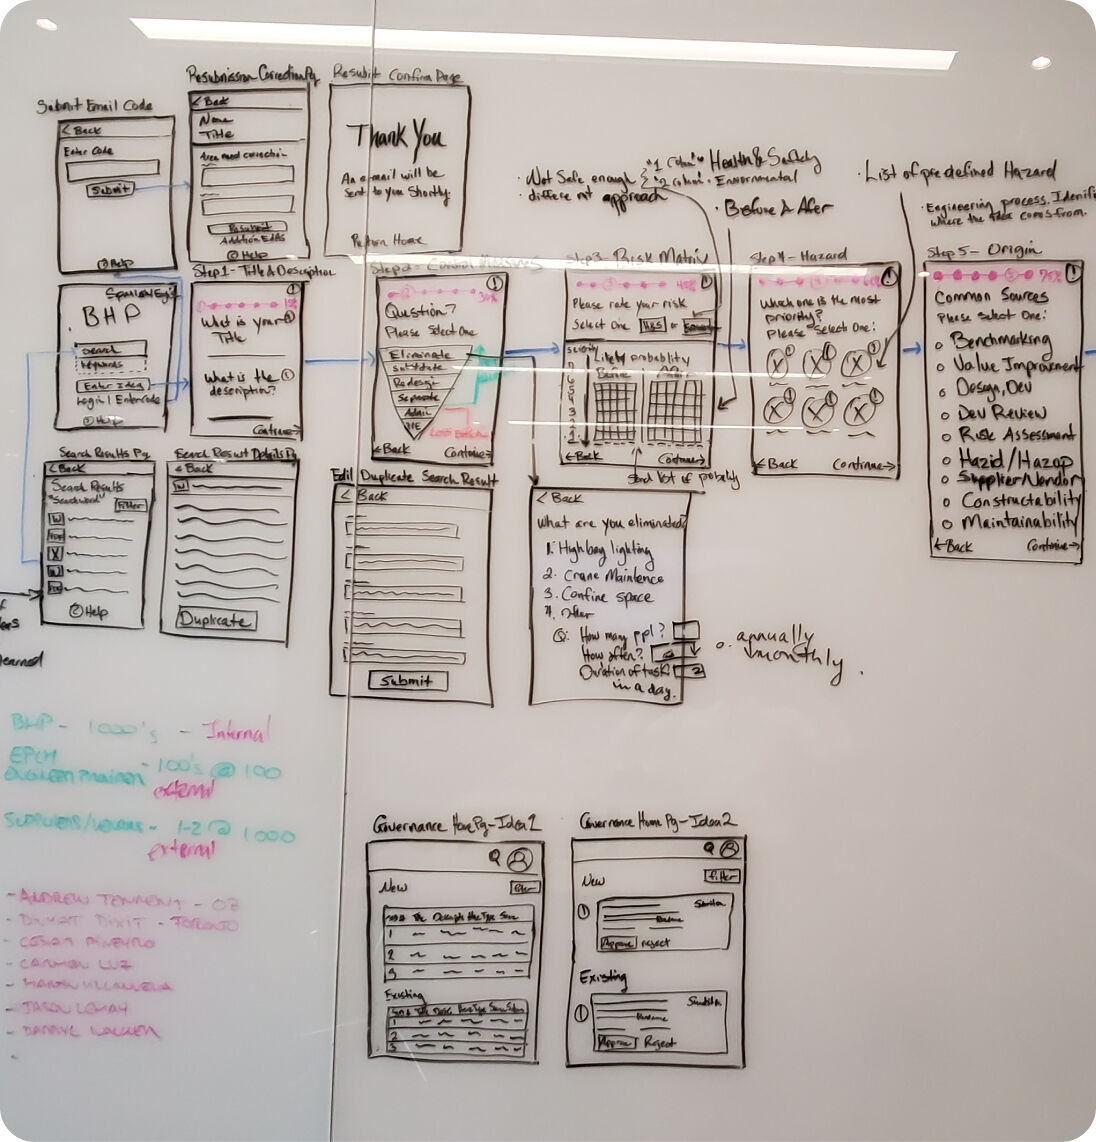 Submit Email Code
< Back
Enter Code
Submit
? Help
Resubmission Correction Pg
< Back
Name
Title
Area need correction
Resubmit
Addition Edits
? Help
Resubmit Confirm Page
Thank You
An email will be
sent to you Shortly.
Return Home
BHP
Search
Keywords
Enter Idea
Login | Enter Code
? Help
Step 1 - Title & Description
15%
What is your
Title
What is the
description?
Continue →
Step 2 - Control Measures
30%
Question?
Please Select One
Eliminate
Substitute
Redesign
Separate
Admin
PPE
← Back
Continue →
• Not Safe enough
• different approach
"1 Column" Health & Safety
"2 Column" • Environmental
• Before & After
Step 3 - Risk Matrix
45%
Please rate your risk
Select One
H&S or
Severity
Likely probability
Before
After
7
6
5
4
3
2
1
← Back
Continue →
Send list of probability
Step 4 - Hazard
60%
Which one is the most
priority?
Please Select One:
← Back
Continue →
• List of predefined Hazard
• Engineering process. Identif
where the idea comes from.
Step 5 - Origin
75%
Common Sources
Please Select One:
Benchmarking
Value Improvment
Design, Dev
Dev Review
Risk Assessment
Hazid / Hazop
Supplier/Vendor
Constructability
Maintainability
← Back
Continue →
Search Results Pg
< Back
Search Results
"Searchword"
Filter
W
PDF
X
W
PDF
? Help
Search Result Details Pg
< Back
W
Duplicate
Edit Duplicate Search Result
< Back
Submit
< Back
What are you eliminated?
1. High bay lighting
2. Crane Maintence
3. Confine space
4. Other
Q: How many ppl?
How often?
Duration of task?
in a day.
annually
monthly
earned
BHP - 1000's - Internal
EPCM
- 100's @ 100
external
Suppliers/Vendors - 1-2 @ 1000
external
- ANDREW TENNENT - OZ
- DIXIT - TORONTO
- CESAR PINEYRO
- CARMEN LUZ
- MARTIN VILLANUEVA
- JASON LEMAY
Governance Home Pg - Idea 1
New
Filter
1
2
3
Existing
1
2
3
Governance Home Pg - Idea 2
New
Filter
Approve Reject
Existing
Approve Reject